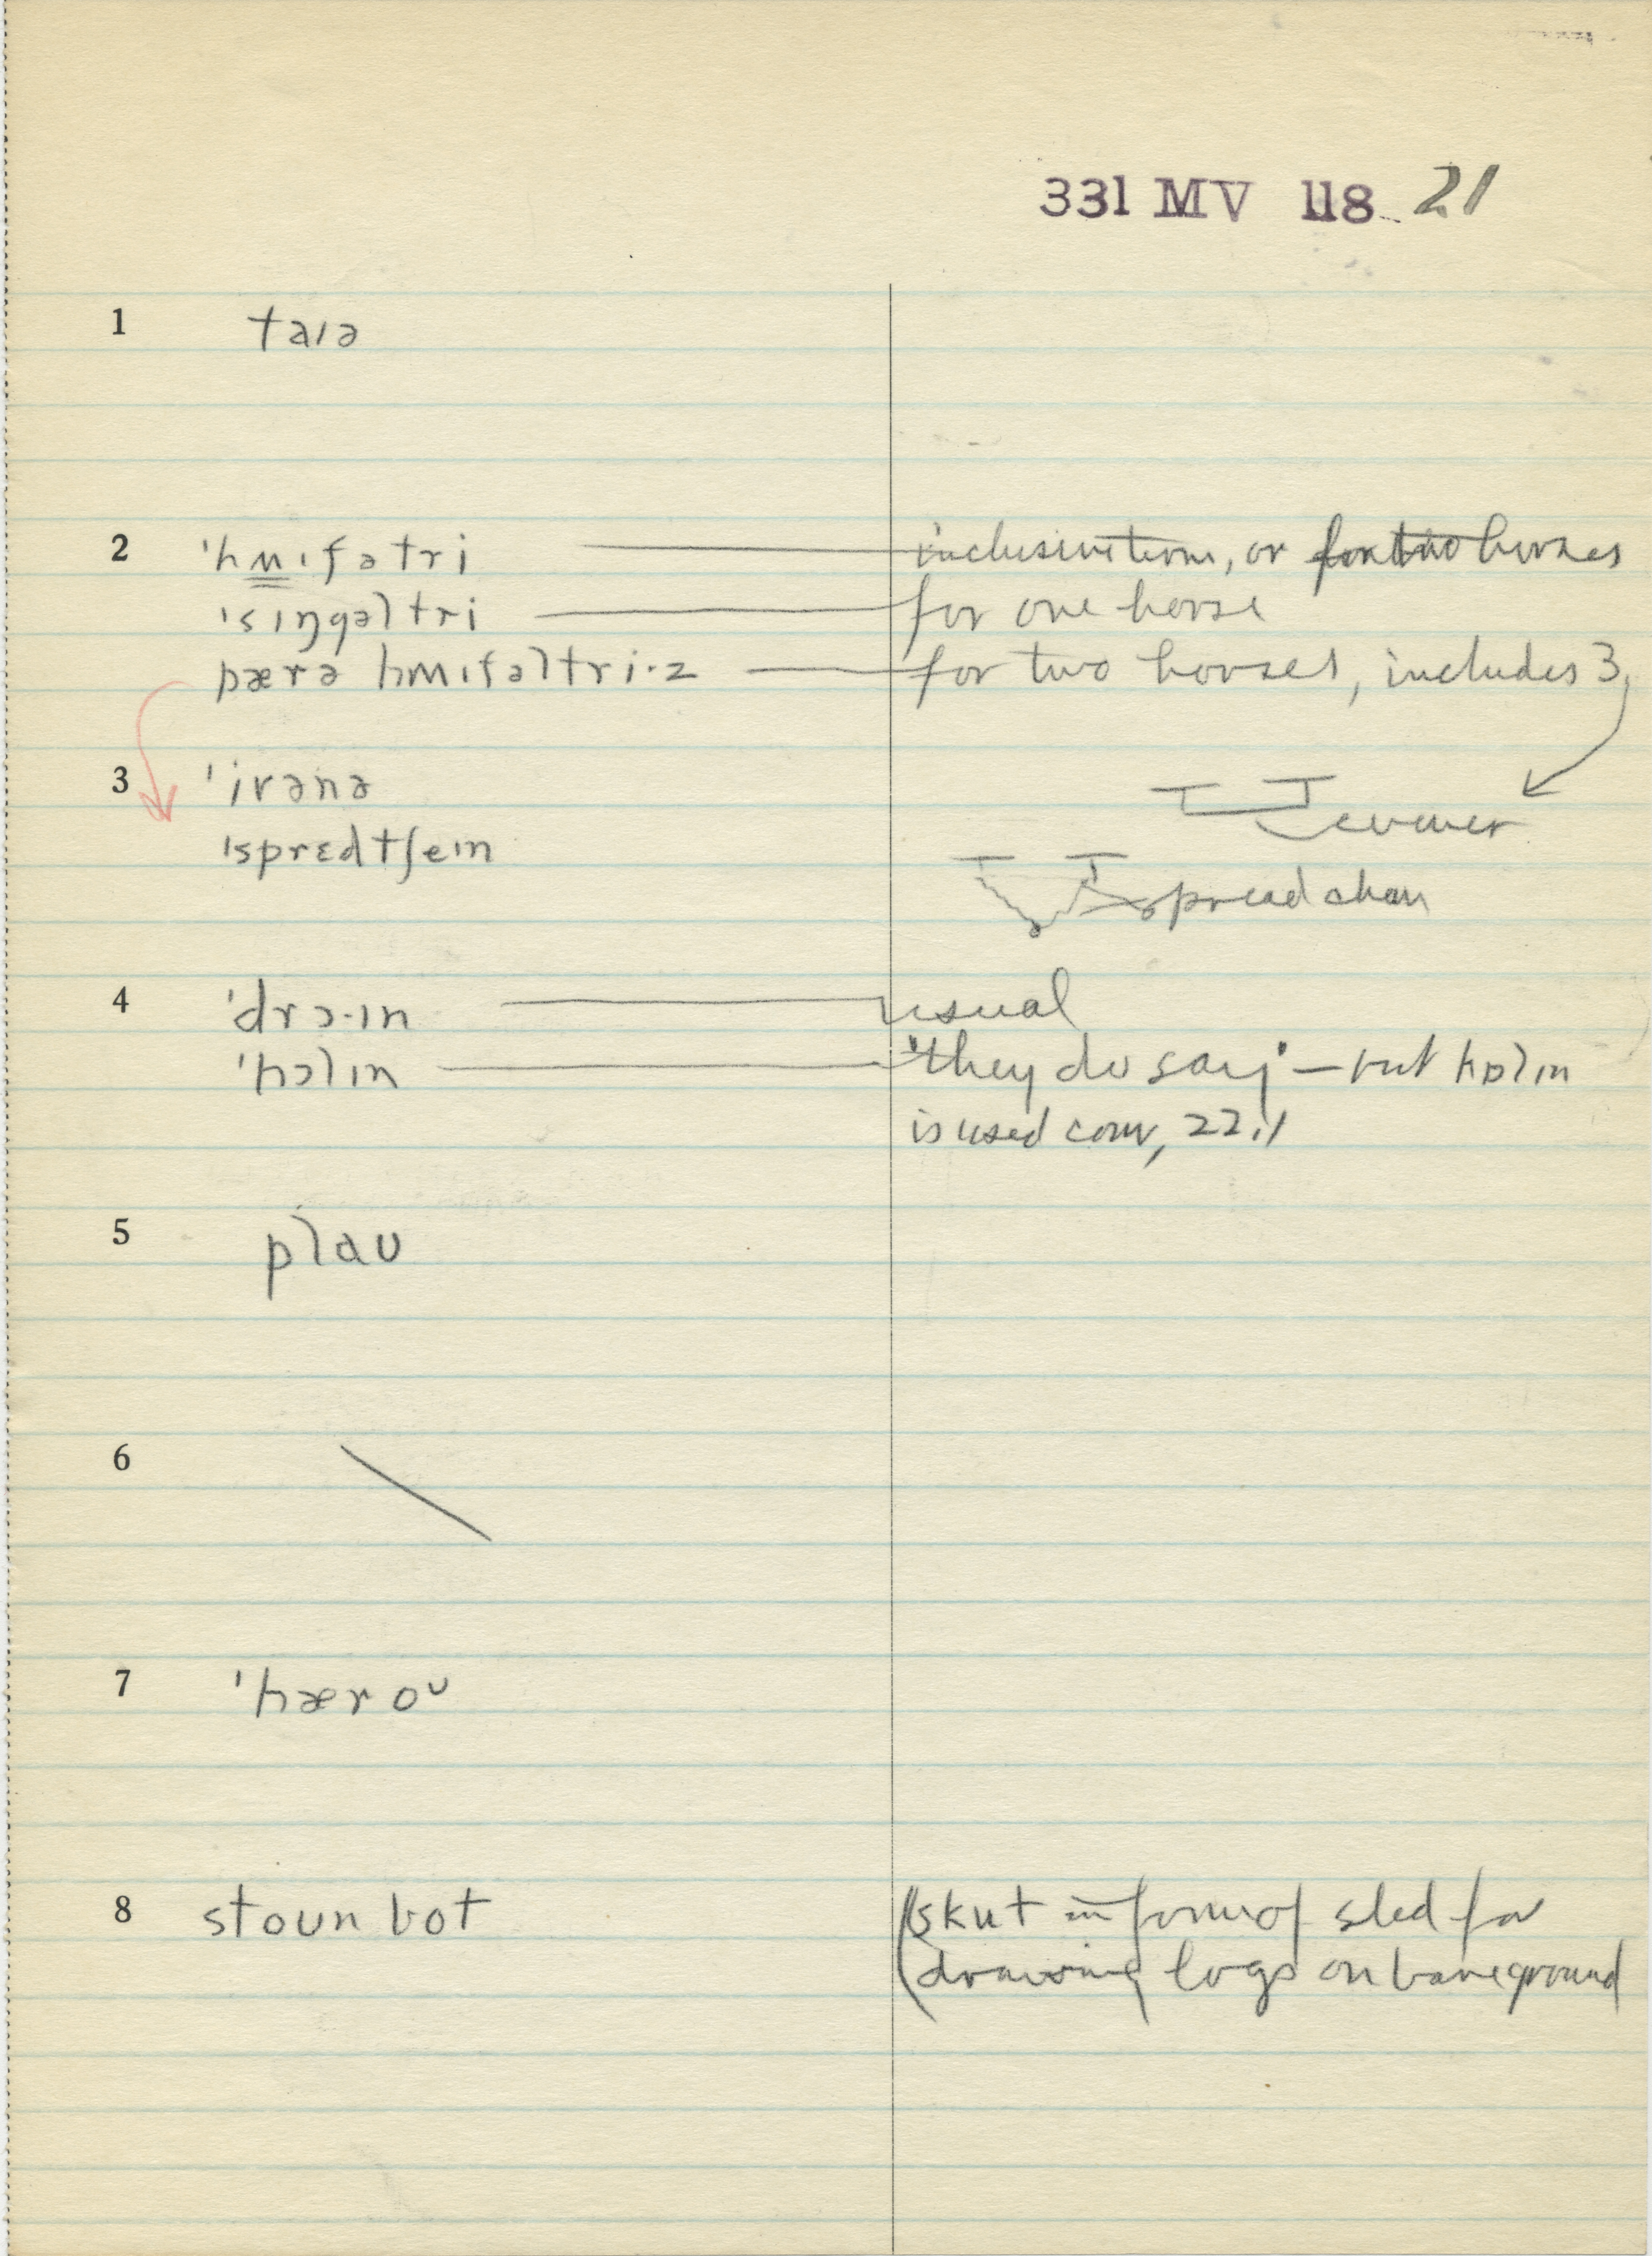 331 MV 118 21
1 taɪə
2 ˈhʍɪfətri inclusive term, or for two horses
ˈsɪŋgəltri for one horse
pærə hʍɪfəltri·z for two horses, includes 3
3 ˈivənə evener
ˈspredtʃeɪn spread chain
4 ˈdrɔ·ɪn usual
ˈhɔlɪn "they do say" – but hɒlɪn
is used conv, 22.1
5 plaʊ
6
7 ˈhæroʊ
8 stoun bot (skut in form of sled for
drawing logs on bare ground